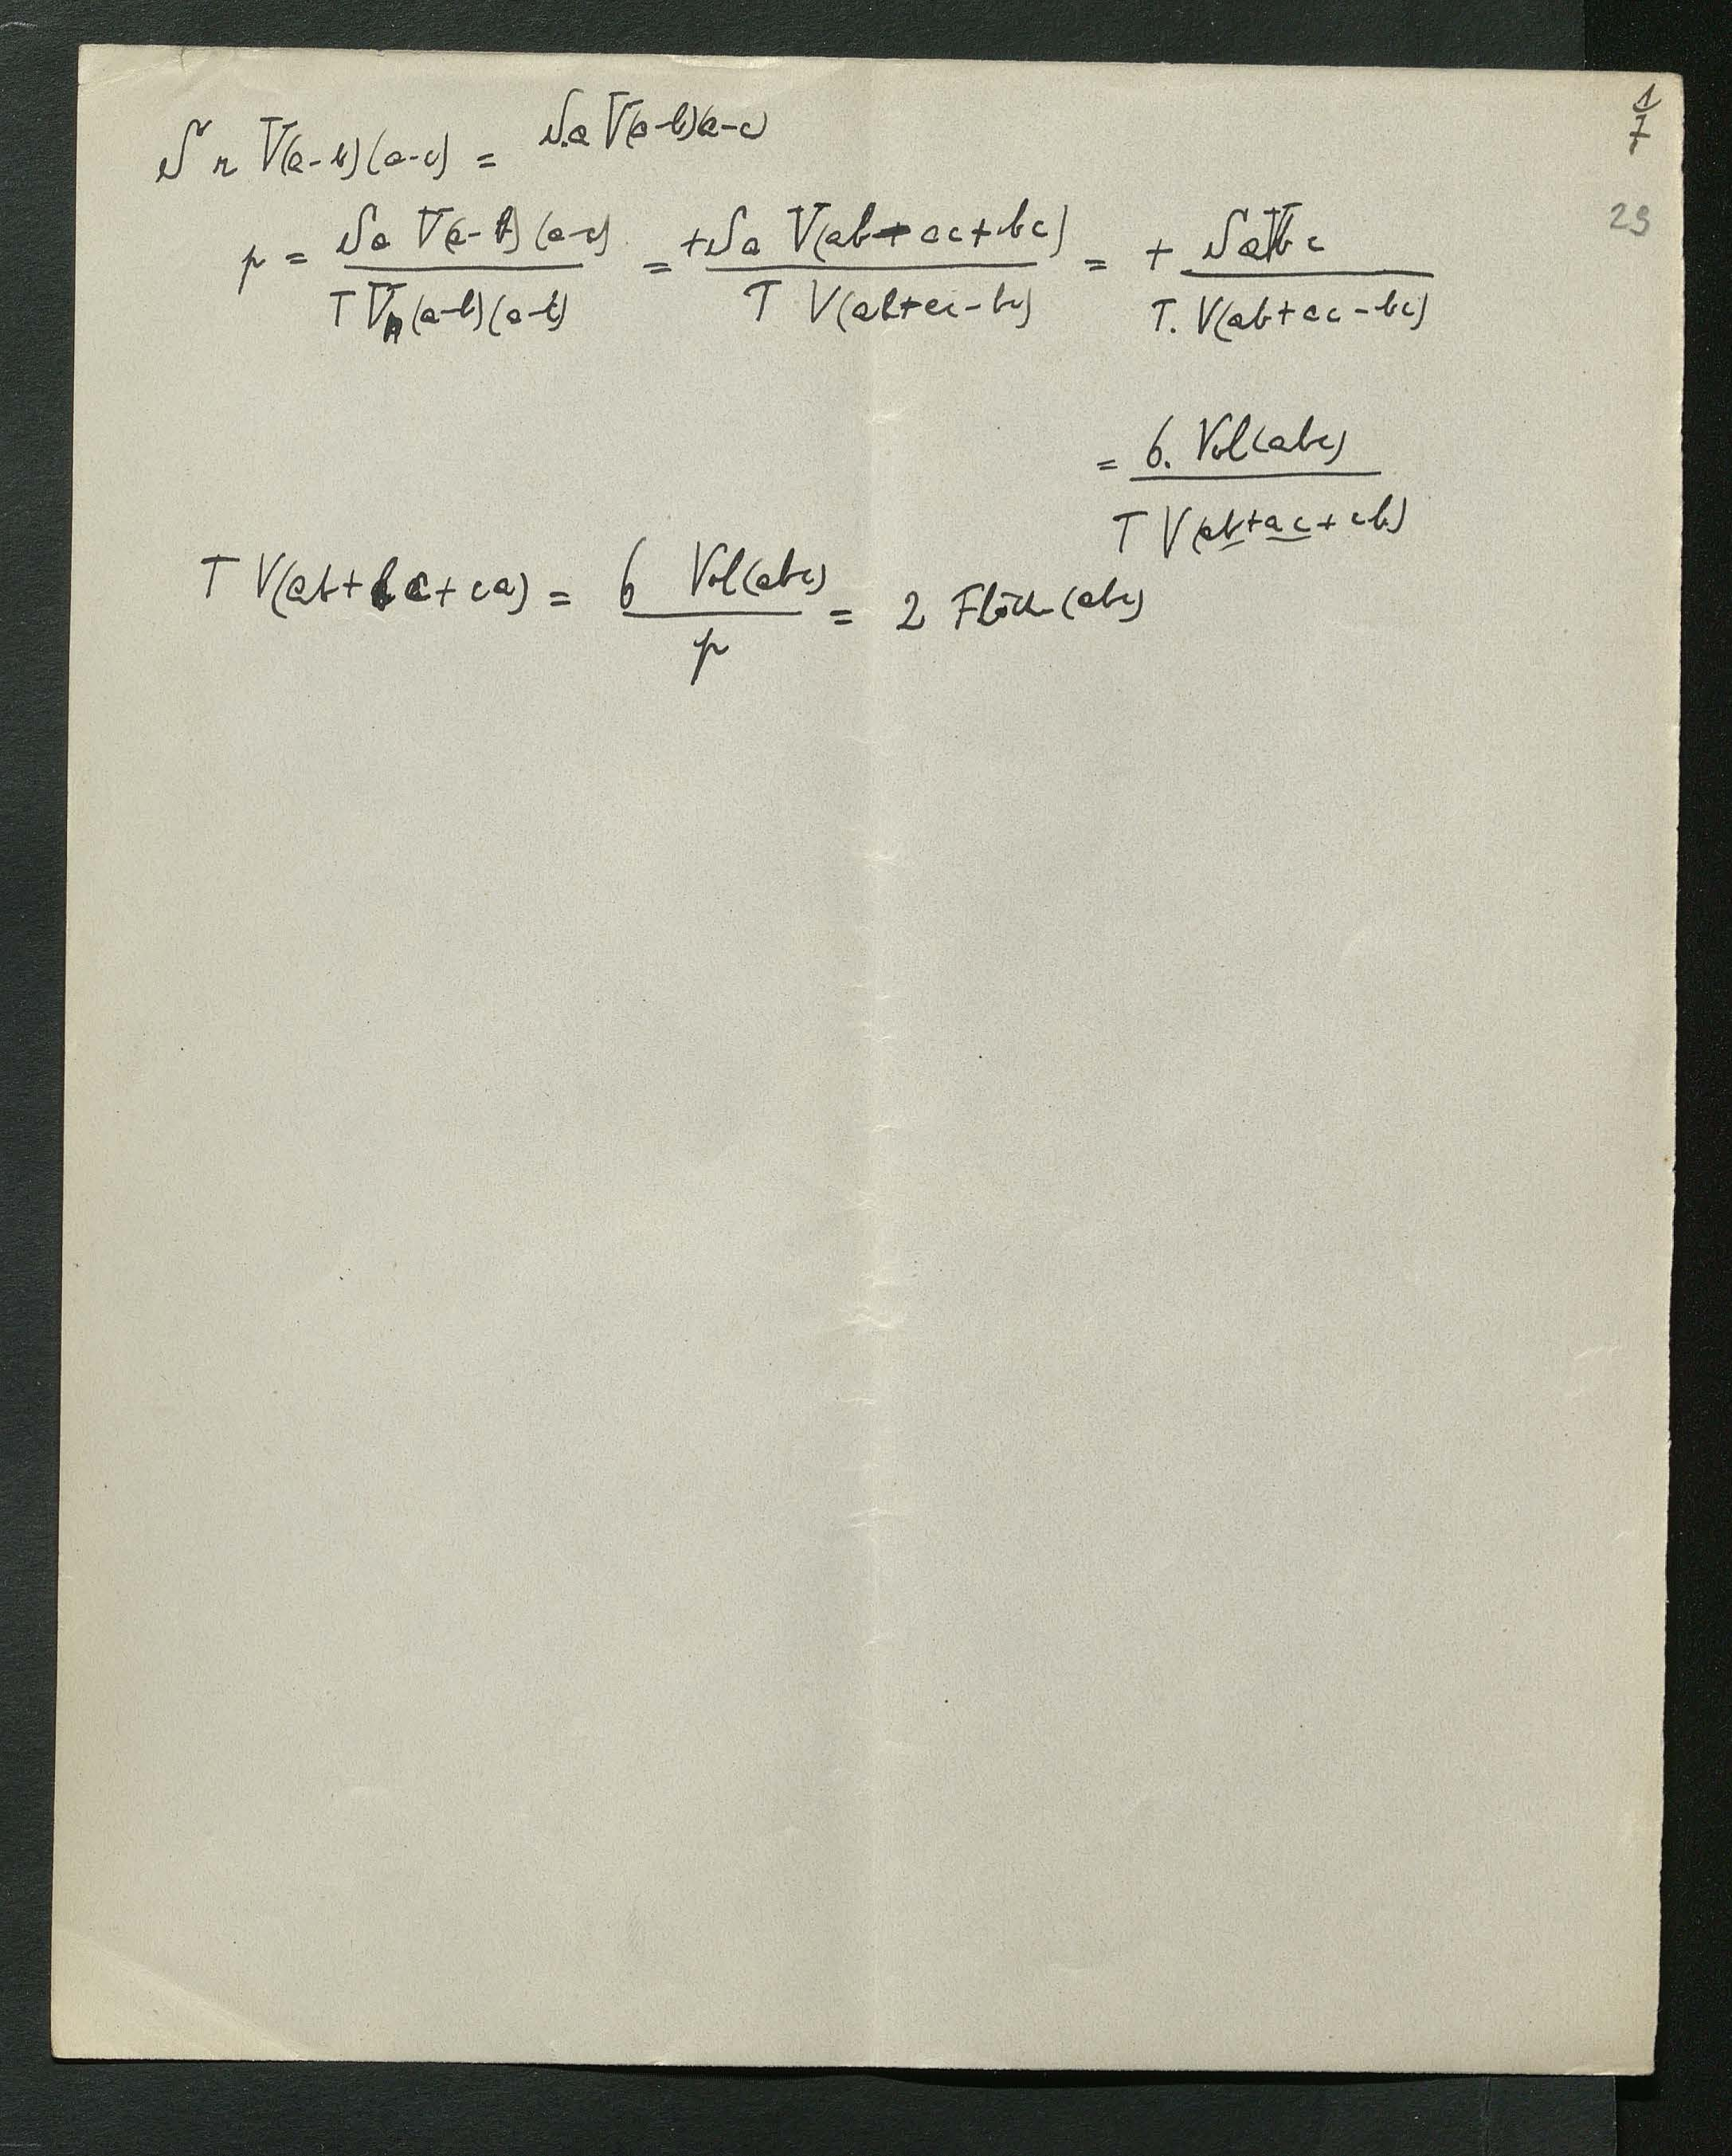 1/7
S r V(a-b)(a-c) = S.a V(a-b)(a-c)
29
p = Sa V(a-b)(a-c) / T V(a-b)(a-c) = +Sa V(ab+ac+bc) / T V(ab+ac-bc) = + SaVbc / T. V(ab+ac-bc)
= 6. Vol(abc) / T V(ab+ac+cb)
T V(ab+bc+ca) = 6 Vol(abc) / p = 2 Fläche(abc)